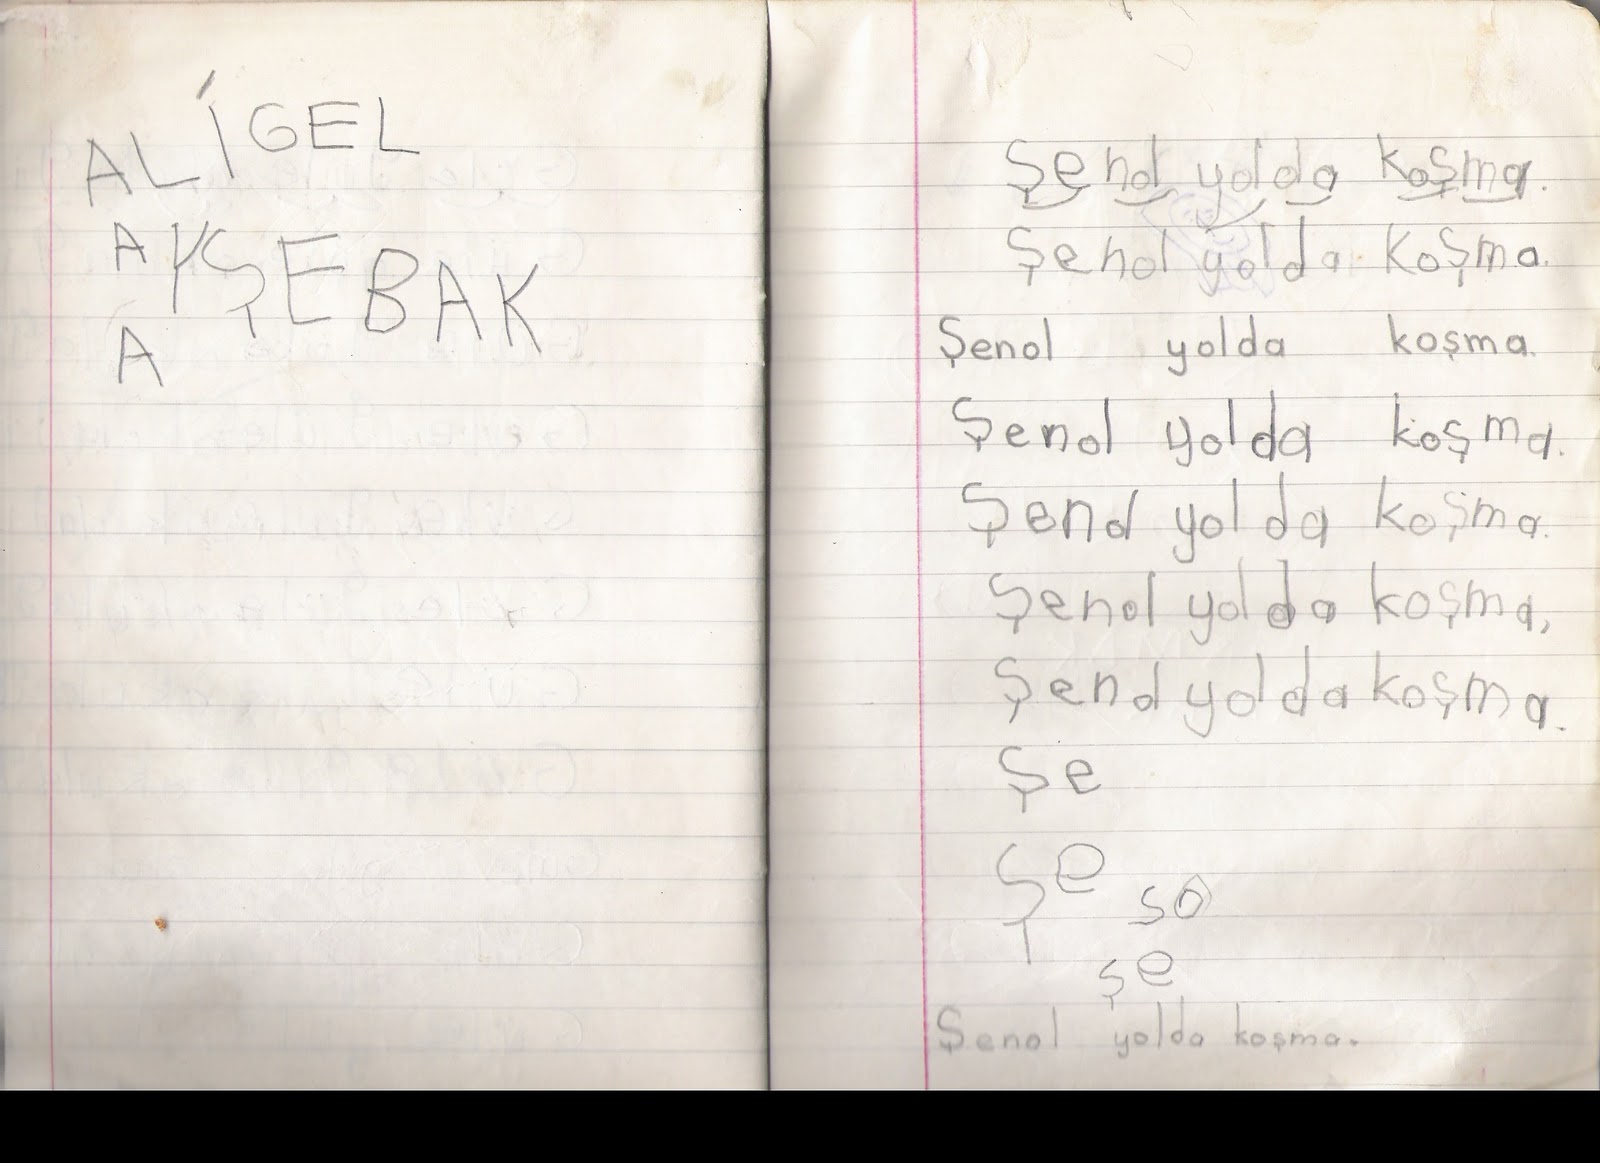 ALİGEL
A
AYŞEBAK
A
Şenol yolda koşma.
Şenol yolda koşma.
Şenol yolda koşma.
Şenol yolda koşma.
Şenol yolda koşma.
Şenol yolda koşma,
Şenol yolda koşma.
Şe
Şe
so
şe
Şenol yolda koşma.